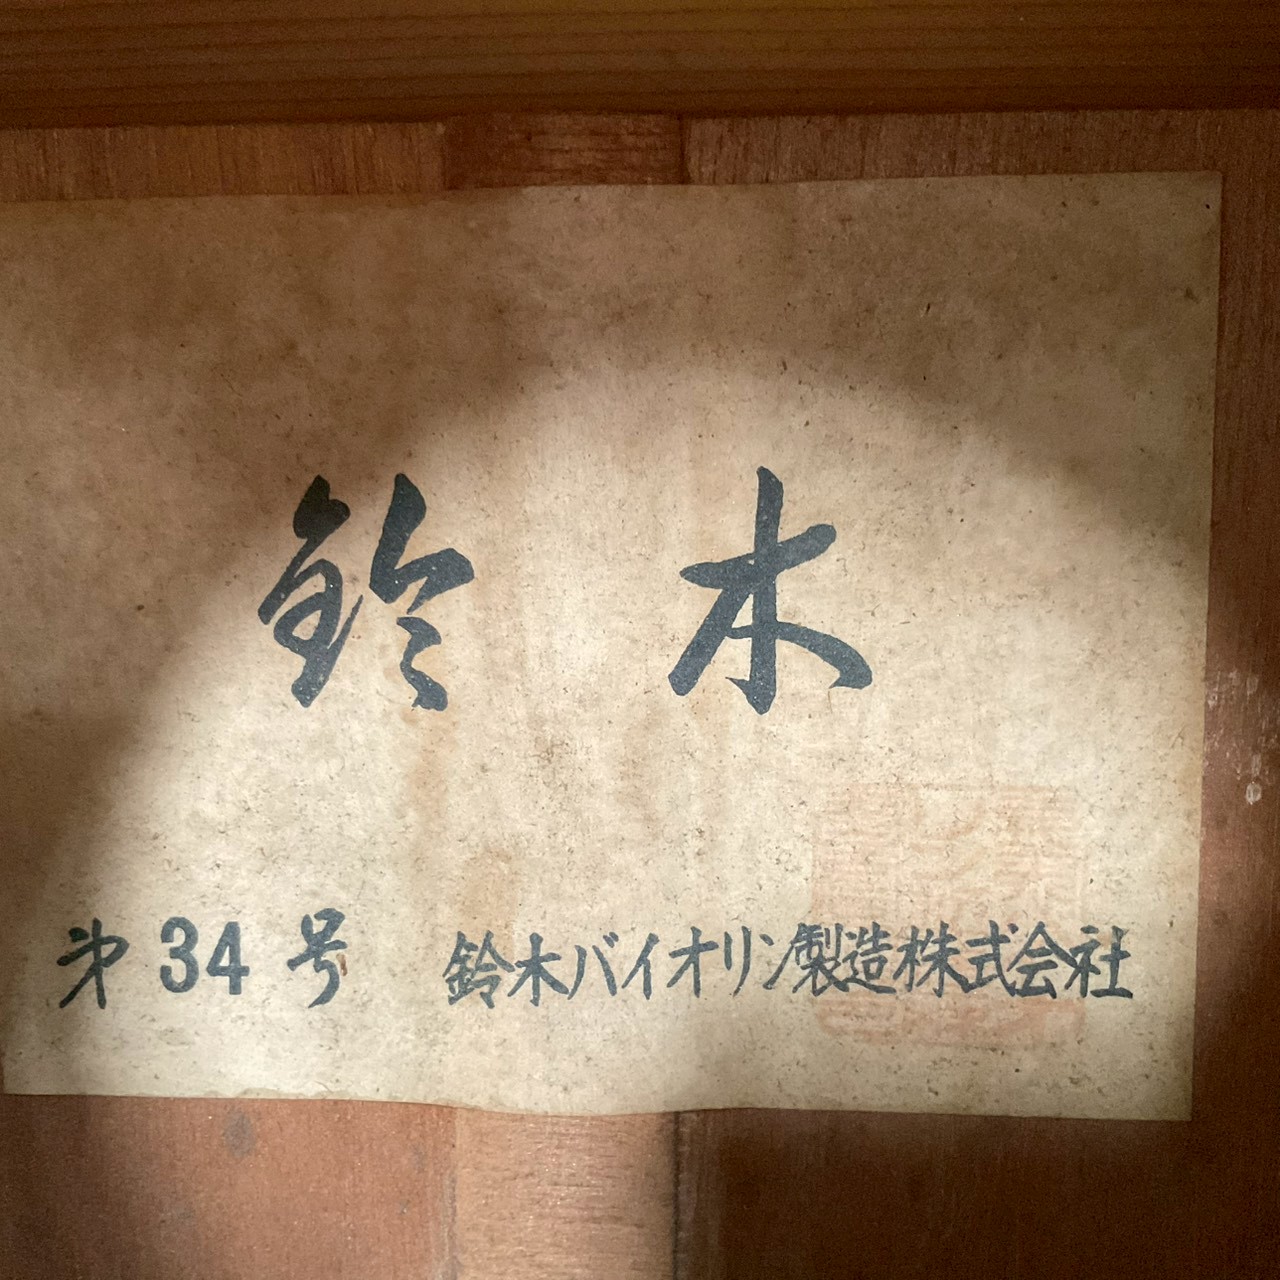 鈴木
第34号 鈴木バイオリン製造株式会社